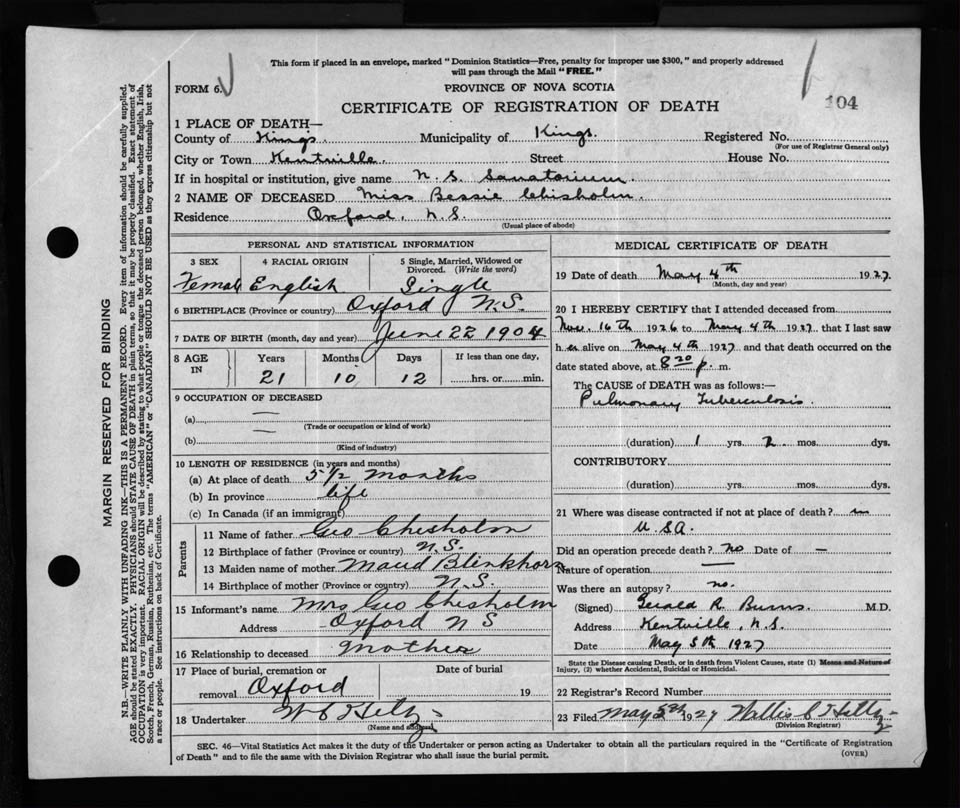 This form if placed in an envelope, marked "Dominion Statistics—Free, penalty for improper use $300," and properly addressed
will pass through the Mail "FREE."
FORM 6.
PROVINCE OF NOVA SCOTIA
CERTIFICATE OF REGISTRATION OF DEATH
104
1 PLACE OF DEATH—
County of Kings. Municipality of Kings. Registered No.
(For use of Registrar General only)
City or Town Kentville. Street House No.
If in hospital or institution, give name N. S. Sanatorium.
2 NAME OF DECEASED Miss Bessie Chisholm.
Residence Oxford, N.S.
(Usual place of abode)
PERSONAL AND STATISTICAL INFORMATION
3 SEX 4 RACIAL ORIGIN 5 Single, Married, Widowed or
Divorced. (Write the word)
Female English Single
6 BIRTHPLACE (Province or country) Oxford N.S.
7 DATE OF BIRTH (month, day and year) June 22 1904
8 AGE IN Years Months Days If less than one day,
21 10 12 hrs. or min.
9 OCCUPATION OF DECEASED
(a) —
(Trade or occupation or kind of work)
(b) —
(Kind of industry)
10 LENGTH OF RESIDENCE (in years and months)
(a) At place of death 5 1/2 months
(b) In province life
(c) In Canada (if an immigrant)
Parents
11 Name of father Geo Chisholm
12 Birthplace of father (Province or country) N.S.
13 Maiden name of mother Maud Blinkhorn
14 Birthplace of mother (Province or country) N.S.
15 Informant's name Mrs Geo Chisholm
Address Oxford N S
16 Relationship to deceased Mother
17 Place of burial, cremation or Date of burial
removal Oxford 19
18 Undertaker W C Hiltz
(Name and address)
MEDICAL CERTIFICATE OF DEATH
19 Date of death May 4th 1927.
(Month, day and year)
20 I HEREBY CERTIFY that I attended deceased from
Nov. 16th 1926 to May 4th 1927 that I last saw
her alive on May 4th 1927 and that death occurred on the
date stated above, at 8 20 p. m.
The CAUSE of DEATH was as follows:—
Pulmonary Tuberculosis.
(duration) 1 yrs. 2 mos. dys.
CONTRIBUTORY
(duration) yrs. mos. dys.
21 Where was disease contracted if not at place of death? in
U.S.A.
Did an operation precede death? no Date of —
Nature of operation —
Was there an autopsy? no.
(Signed) Gerald R. Burns. M.D.
Address Kentville, N.S.
Date May 5th 1927
State the Disease causing Death, or in death from Violent Causes, state (1) Means and Nature of
Injury, (2) whether Accidental, Suicidal or Homicidal.
22 Registrar's Record Number
23 Filed May 5th 1927 Willis C Hiltz
(Division Registrar)
SEC. 46—Vital Statistics Act makes it the duty of the Undertaker or person acting as Undertaker to obtain all the particulars required in the "Certificate of Registration
of Death" and to file the same with the Division Registrar who shall issue the burial permit.
(OVER)
MARGIN RESERVED FOR BINDING
N.B.—WRITE PLAINLY WITH UNFADING INK—THIS IS A PERMANENT RECORD. Every item of information should be carefully supplied.
AGE should be stated EXACTLY. PHYSICIANS should STATE CAUSE OF DEATH in plain terms, so that it may be properly classified. Exact statement of
OCCUPATION is very important. RACIAL ORIGIN will be described by stating to what people or tongue the deceased person belonged, whether English, Irish,
Scotch, French, German, Russian, Ruthenian, etc. The terms "AMERICAN" or "CANADIAN" SHOULD NOT BE USED as they express citizenship but not
a race or people. See instructions on back of Certificate.